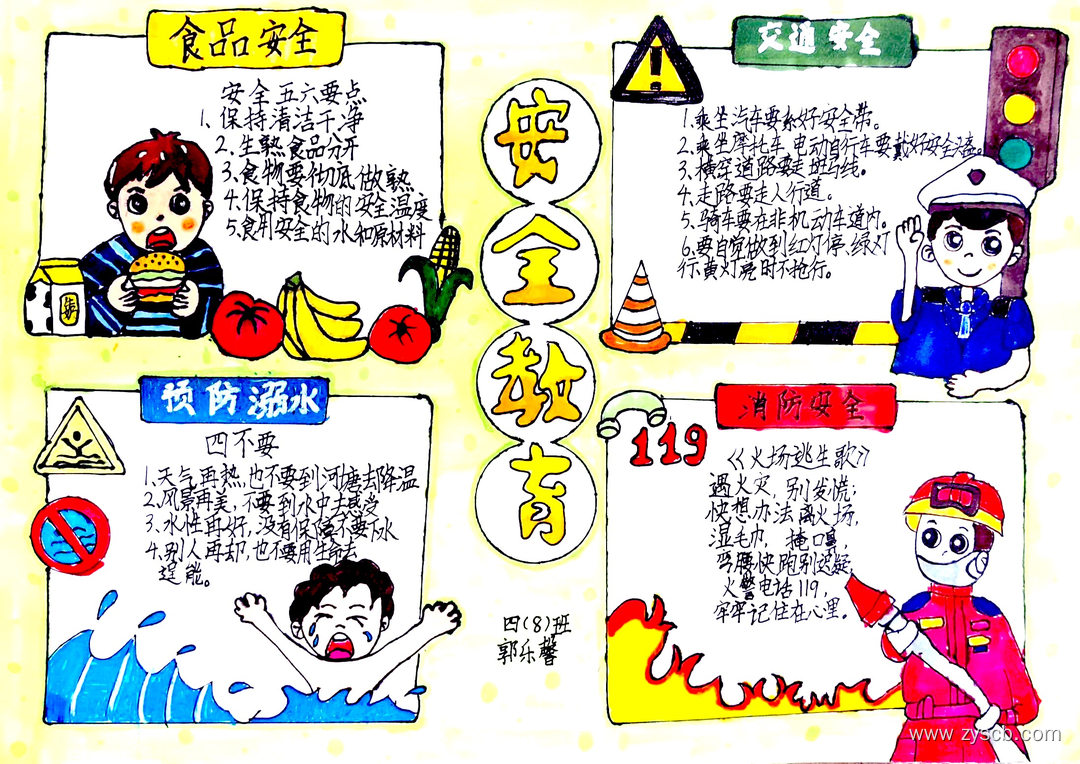 食品安全
安全五六要点
1、保持清洁干净
2.生熟食品分开
3.食物要彻底做熟
4.保持食物的安全温度
5.食用安全的水和原材料
牛奶
安全教育
交通安全
1.乘坐汽车要系好安全带。
2.乘坐摩托车,电动自行车要戴好安全头盔。
3.横穿道路要走斑马线。
4.走路要走人行道。
5.骑车要在非机动车道内。
6.要自觉做到红灯停,绿灯
行,黄灯亮时不抢行。
预防溺水
四不要
1.天气再热,也不要到河塘去降温
2.风景再美,不要到水中去感受
3.水性再好,没有保障不要下水
4.别人再却,也不要用生命去
逞能。
四(8)班
郭乐馨
消防安全
119
《火场逃生歌》
遇火灾,别发慌;
快想办法离火场,
湿毛巾,掩口鼻,
弯腰快跑别迟疑,
火警电话119,
牢牢记住在心里。
www.zyscb.com